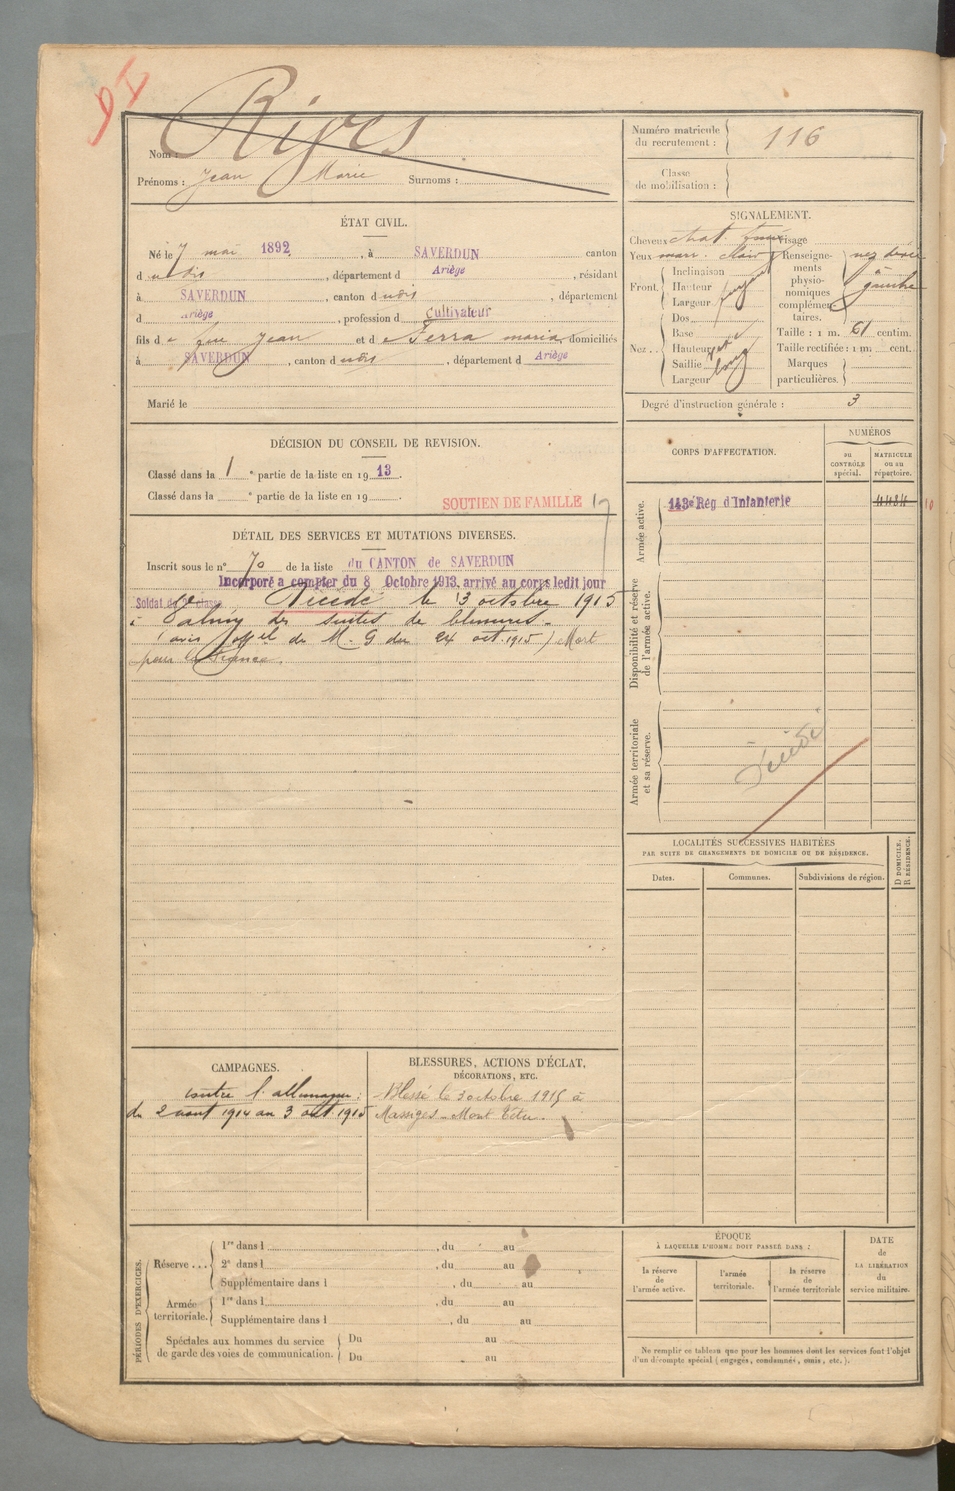 Nom : Rives
Prénoms : Jean Marie Surnoms :
Numéro matricule du recrutement : 116
Classe de mobilisation :
ÉTAT CIVIL.
Né le 7 mai 1892, à SAVERDUN canton
d udis, département d Ariège, résidant
à SAVERDUN, canton d udis, département
d Ariège, profession d cultivateur
fils de feu Jean et de Ferra maria, domiciliés
à SAVERDUN, canton d udis, département d Ariège
Marié le
SIGNALEMENT.
Cheveux chat Visage
Yeux marr. clair
Front. Inclinaison
Hauteur
Largeur
Nez... Dos
Base
Hauteur
Saillie
Largeur
Renseignements physionomiques complémentaires. nez dévié à gauche
Taille : 1 m. 61 centim.
Taille rectifiée : 1 m. cent.
Marques particulières.
Degré d'instruction générale : 3
DÉCISION DU CONSEIL DE REVISION.
Classé dans la 1 e partie de la liste en 1913.
Classé dans la e partie de la liste en 19 .
SOUTIEN DE FAMILLE 17
CORPS D'AFFECTATION.
NUMÉROS
au CONTRÔLE spécial.
MATRICULE ou au répertoire.
Armée active.
143e Rég d'Infanterie
10
Disponibilité et réserve de l'armée active.
Armée territoriale et sa réserve.
Décédé
DÉTAIL DES SERVICES ET MUTATIONS DIVERSES.
Inscrit sous le n° 70 de la liste du CANTON de SAVERDUN
Incorporé à compter du 8 Octobre 1913, arrivé au corps ledit jour
Soldat de 2e classe Décédé le 3 octobre 1915
à Valmy des suites de blessures.
(avis off el de M. G du 24 oct. 1915) Mort
pour la France.
LOCALITÉS SUCCESSIVES HABITÉES
PAR SUITE DE CHANGEMENTS DE DOMICILE OU DE RÉSIDENCE.
Dates.
Communes.
Subdivisions de région.
D DOMICILE.
R RÉSIDENCE.
CAMPAGNES.
contre l'allemagne :
du 2 aout 1914 au 3 oct 1915
BLESSURES, ACTIONS D'ÉCLAT,
DÉCORATIONS, ETC.
Blessé le 3 octobre 1915 à
Massiges - Mont Têtu.
PÉRIODES D'EXERCICES.
Réserve... 1re dans l , du au
2e dans l , du au
Supplémentaire dans l , du au
Armée territoriale. 1re dans l , du au
Supplémentaire dans l , du au
Spéciales aux hommes du service de garde des voies de communication. Du au
Du au
ÉPOQUE
À LAQUELLE L'HOMME DOIT PASSER DANS :
la réserve de l'armée active.
l'armée territoriale.
la réserve de l'armée territoriale
DATE de LA LIBÉRATION du service militaire.
Ne remplir ce tableau que pour les hommes dont les services font l'objet
d'un décompte spécial (engagés, condamnés, omis, etc.).